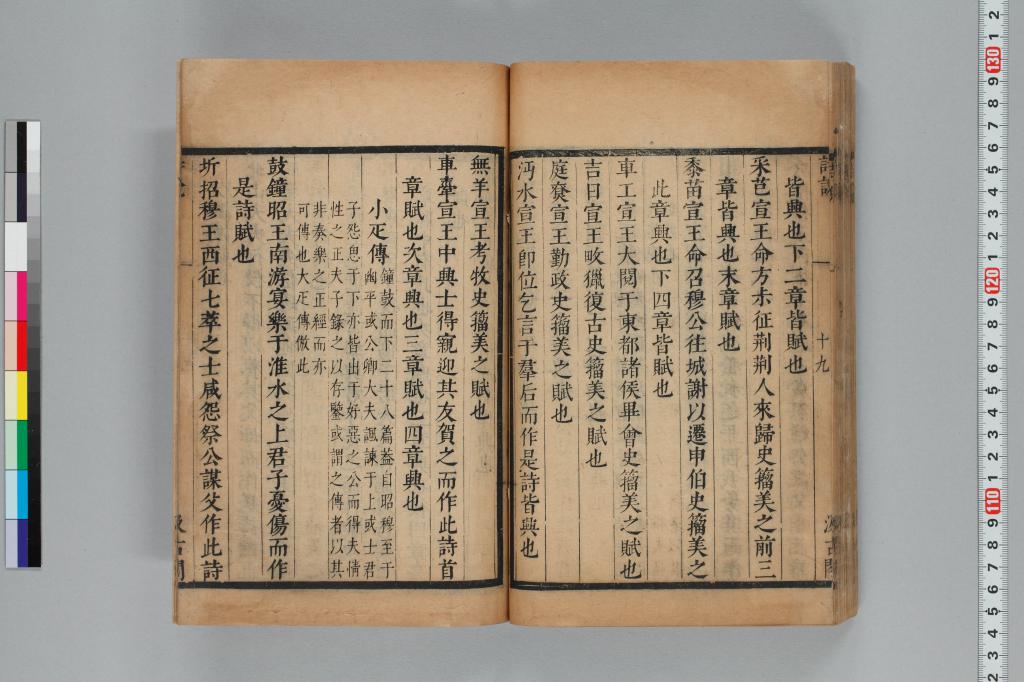 皆興也下二章皆賦也
采芑宣王命方叔征荆荆人來歸史籀美之前三
章皆興也末章賦也
黍苗宣王命召穆公往城謝以遷申伯史籀美之
此章興也下四章皆賦也
車工宣王大閱于東都諸侯畢會史籀美之賦也
吉日宣王畋獵復古史籀美之賦也
庭燎宣王勤政史籀美之賦也
沔水宣王卽位乞言于羣后而作是詩皆興也
十九
無羊宣王考牧史籀美之賦也
車舝宣王中興士得親迎其友賀之而作此詩首
章賦也次章興也三章賦也四章興也
小疋傳
鐘鼓而下二十八篇葢自昭穆至于
幽平或公卿大夫諷諫于上或士君
子怨思于下亦皆由于好惡之公而得夫情
性之正夫子錄之以存鑒或謂之傳者以其
非奏樂之正經而亦
可傳也大疋傳倣此
鼓鐘昭王南游宴樂于淮水之上君子憂傷而作
是詩賦也
圻招穆王西征七萃之士咸怨祭公謀父作此詩